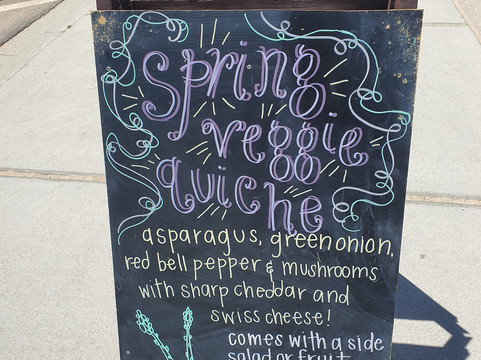 spring
veggie
quiche
asparagus, green onion,
red bell pepper & mushrooms
with sharp cheddar and
swiss cheese!
comes with a side
salad or fruit